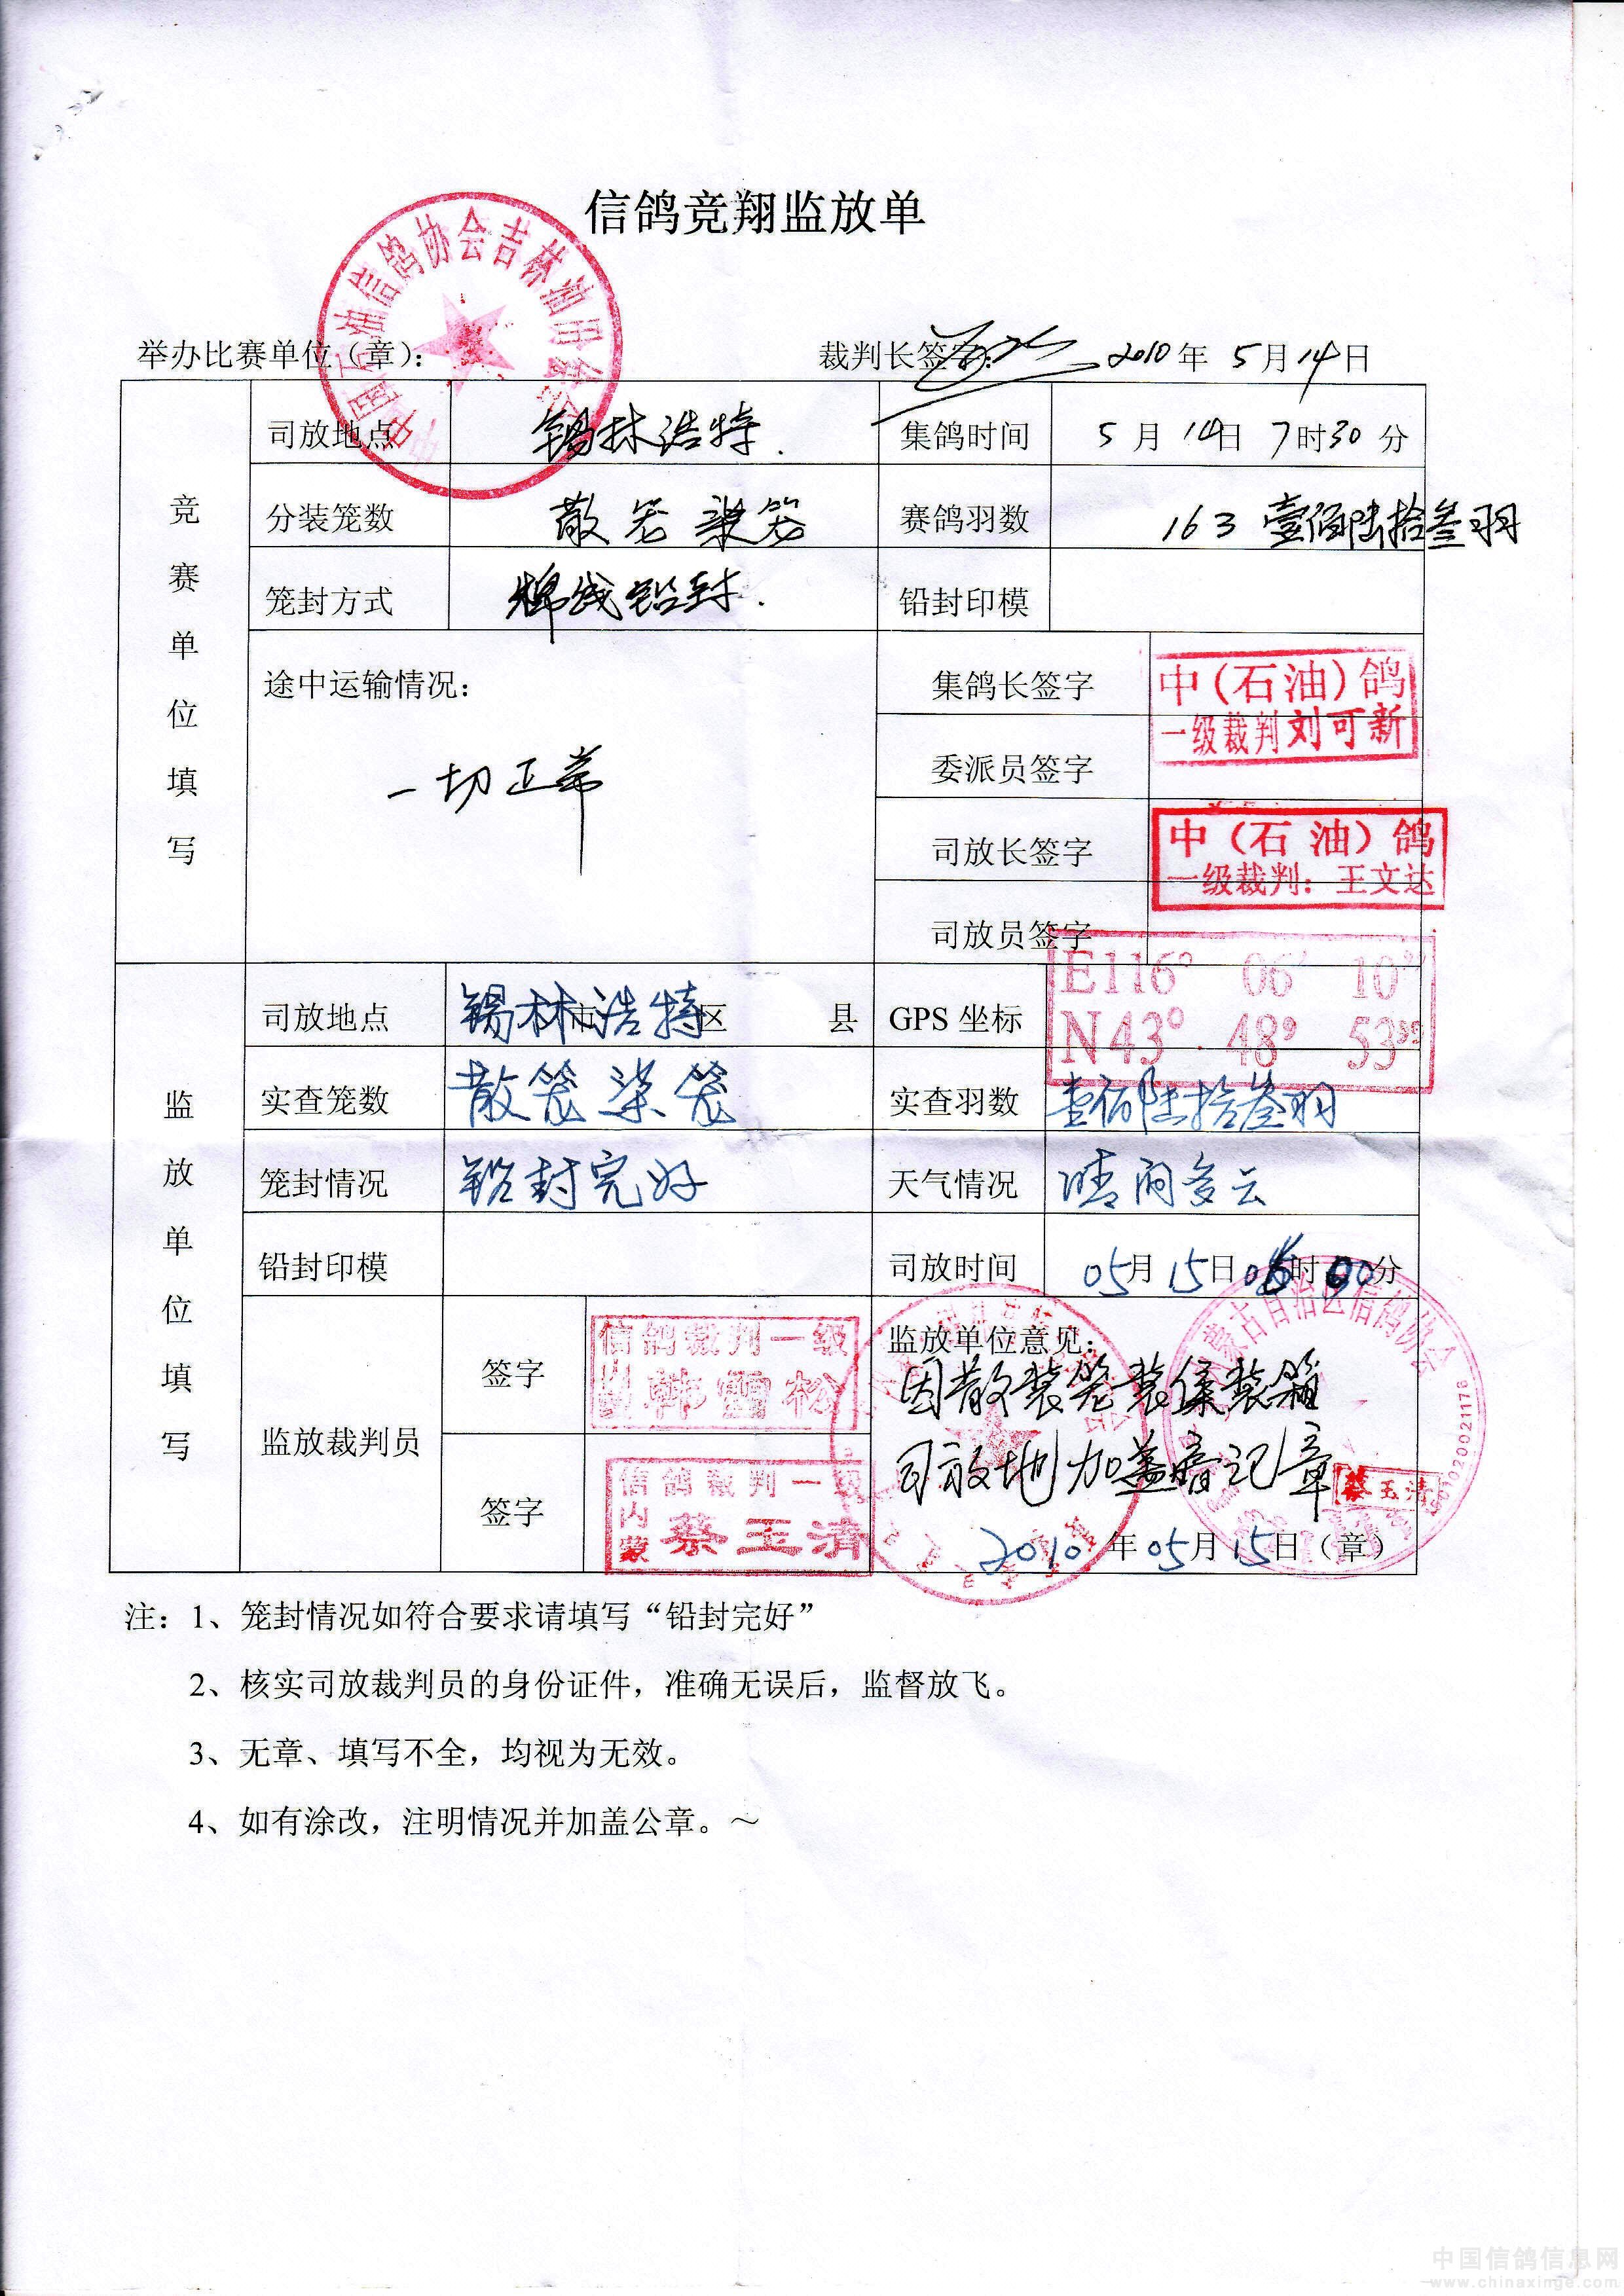 信鸽竞翔监放单
中国石油信鸽协会吉林油田分会
举办比赛单位（章）： 裁判长签字： 2010年 5月14日
竞赛单位填写
司放地点 锡林浩特. 集鸽时间 5月14日 7时30分
分装笼数 散笼柒笼 赛鸽羽数 163 壹佰陆拾叁羽
笼封方式 棉线铅封. 铅封印模
途中运输情况： 集鸽长签字 中(石油)鸽
一级裁判刘可新
一切正常 委派员签字
司放长签字 中(石油)鸽
一级裁判：王文达
司放员签字
监放单位填写
司放地点 锡林浩特 市 区 县 GPS 坐标 E116° 06′ 10″
N43° 48 53
实查笼数 散笼柒笼 实查羽数 壹佰陆拾叁羽
笼封情况 铅封完好 天气情况 晴间多云
铅封印模 司放时间 05月15日 时00分
监放裁判员 签字 信鸽裁判一级
韩雪松
签字 信鸽裁判一级
内蒙 蔡玉清
监放单位意见：
因散装笼装集装箱
司放地加盖暗记章
蔡玉清
蒙古自治区信鸽协会
2010年05月15日（章）
注：1、笼封情况如符合要求请填写“铅封完好”
2、核实司放裁判员的身份证件，准确无误后，监督放飞。
3、无章、填写不全，均视为无效。
4、如有涂改，注明情况并加盖公章。～
中国信鸽信息网
www.chinaxinge.com